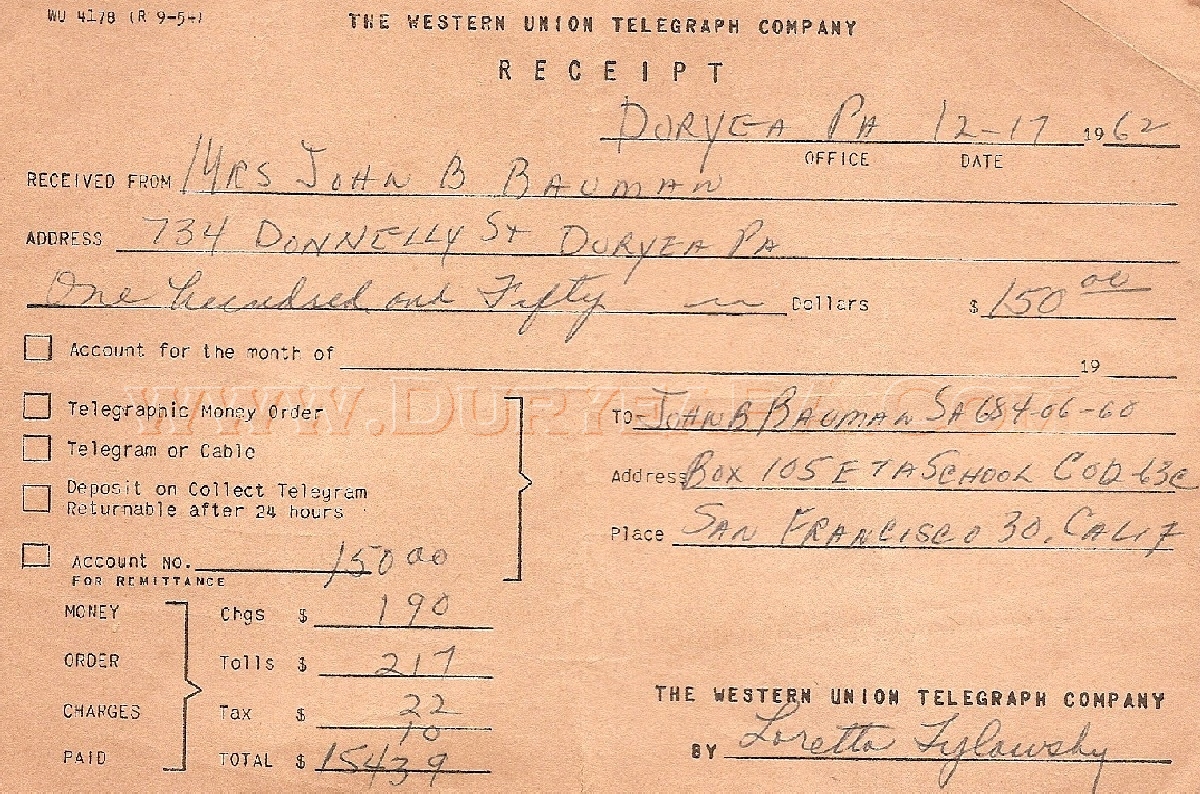 WU 4178 (R 9-54)
THE WESTERN UNION TELEGRAPH COMPANY
RECEIPT
DURYEA PA 12-17 1962
OFFICE DATE
RECEIVED FROM MRS JOHN B BAUMAN
ADDRESS 734 DONNELLY St DURYEA PA
One hundred and Fifty Dollars $ 150 00
Account for the month of 19
www.DuryeaPa.com
Telegraphic Money Order
To JOHN B BAUMAN SA 684-06-60
Telegram or Cable
Address BOX 105 ETA SCHOOL COD-63C
Deposit on Collect Telegram
Returnable after 24 hours
Place SAN FRANCISCO 30, CALIF
Account No. 150 00
FOR REMITTANCE
MONEY Chgs $ 190
ORDER Tolls $ 217
CHARGES Tax $ 22
10
PAID TOTAL $ 15439
THE WESTERN UNION TELEGRAPH COMPANY
BY Loretta